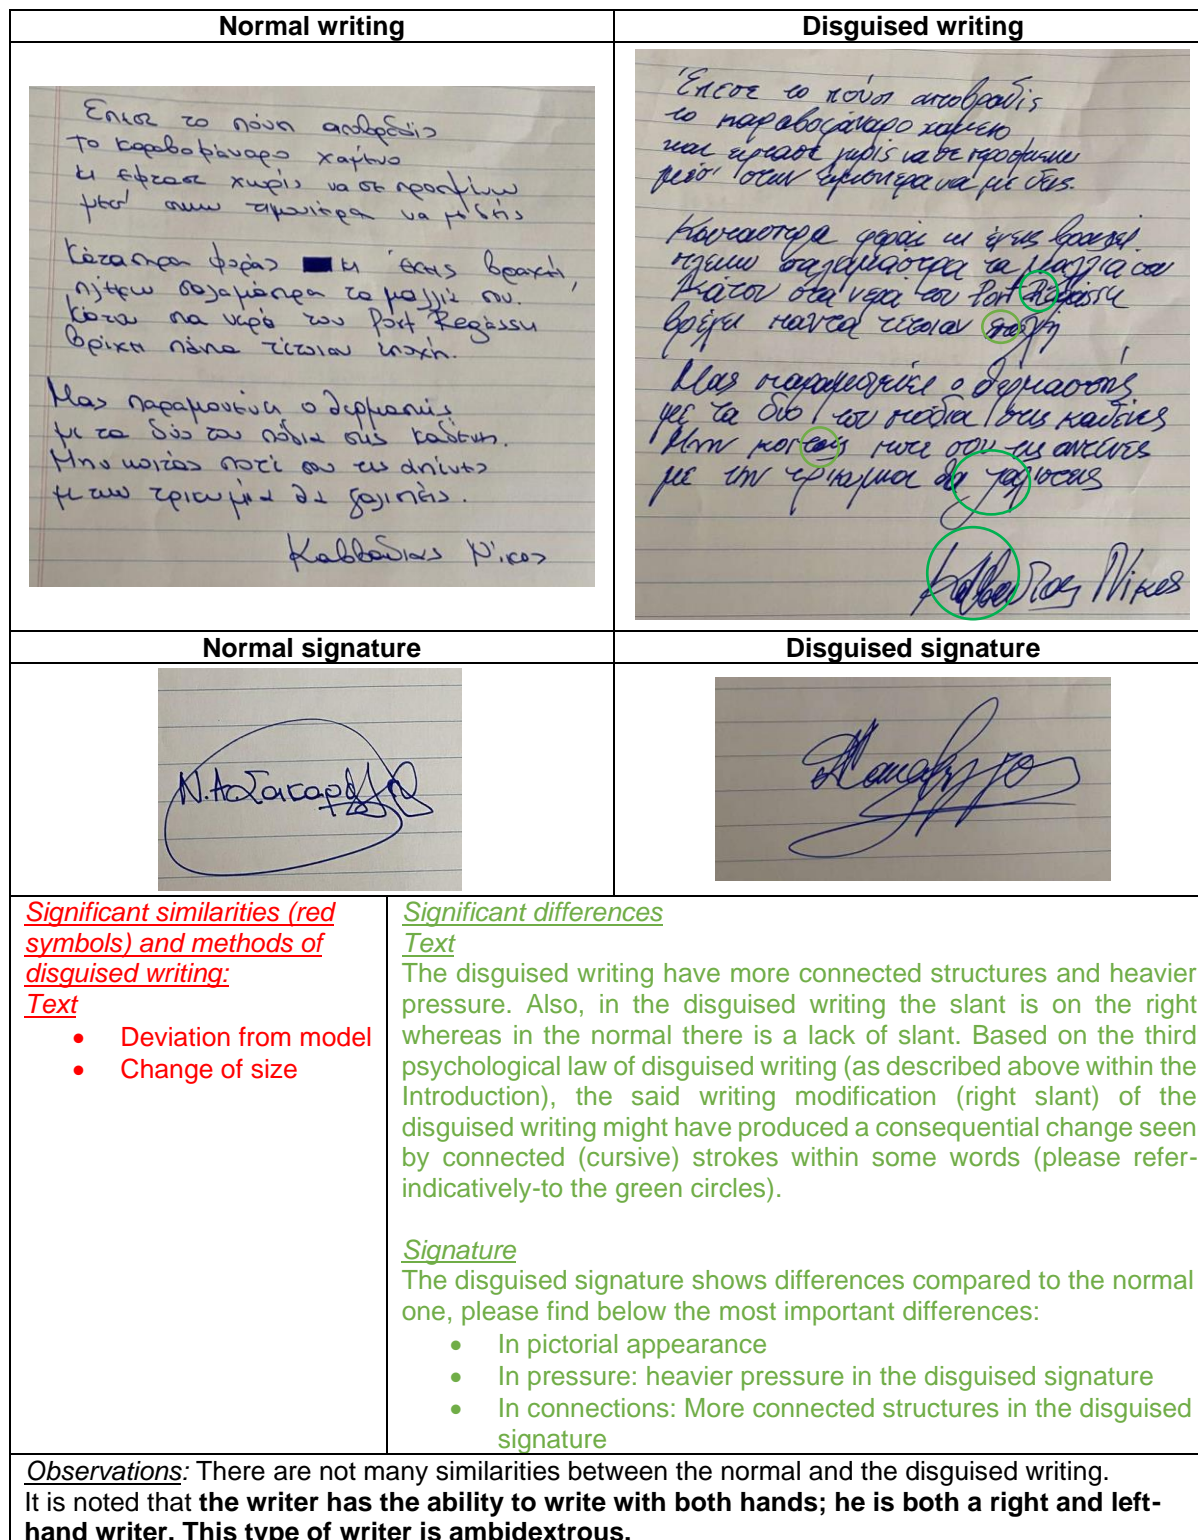 Normal writing
Disguised writing
Έπεσε το πούσι αποβραδίς
το καραβοφάναρο χαμένο
κι έφτασε χωρίς να σε προσμένω
μεσ' στην τιμονιέρα να με δεις
Κάτασπρα φοράς κι έχεις βραχεί,
πλέκω σαλαμάστρα τα μαλλιά σου.
Κάτου στα νερά του Port Regassu
βρέχει πάντα τέτοιαν εποχή.
Μας παραμονεύει ο θερμαστής
με τα δύο του πόδια στις καδένες.
Μην κοιτάς ποτέ σου τις αντένες
με την τρικυμία θα ζαλιστείς.
Καββαδίας Νίκος
Έπεσε το πούσι αποβραδίς
το καραβοφάναρο χαμένο
και έφτασε χωρίς να σε προσμένω
μεσ' στην τιμονιέρα να με δεις.
Κάτασπρα φοράς κι έχεις βραχεί
πλέκω σαλαμάστρα τα μαλλιά σου
Κάτου στα νερά του Port Regassu
βρέχει πάντα τέτοιαν εποχή
Μας παραμονεύει ο θερμαστής
με τα δύο του πόδια στις καδένες
Μην κοιτάς ποτέ σου τις αντένες
με την τρικυμία θα ζαλιστείς
Καββαδίας Νίκος
Normal signature
Disguised signature
Significant similarities (red
symbols) and methods of
disguised writing:
Text
• Deviation from model
• Change of size
Significant differences
Text
The disguised writing have more connected structures and heavier
pressure. Also, in the disguised writing the slant is on the right
whereas in the normal there is a lack of slant. Based on the third
psychological law of disguised writing (as described above within the
Introduction), the said writing modification (right slant) of the
disguised writing might have produced a consequential change seen
by connected (cursive) strokes within some words (please refer-
indicatively-to the green circles).
Signature
The disguised signature shows differences compared to the normal
one, please find below the most important differences:
• In pictorial appearance
• In pressure: heavier pressure in the disguised signature
• In connections: More connected structures in the disguised
signature
Observations: There are not many similarities between the normal and the disguised writing.
It is noted that the writer has the ability to write with both hands; he is both a right and left-
hand writer. This type of writer is ambidextrous.